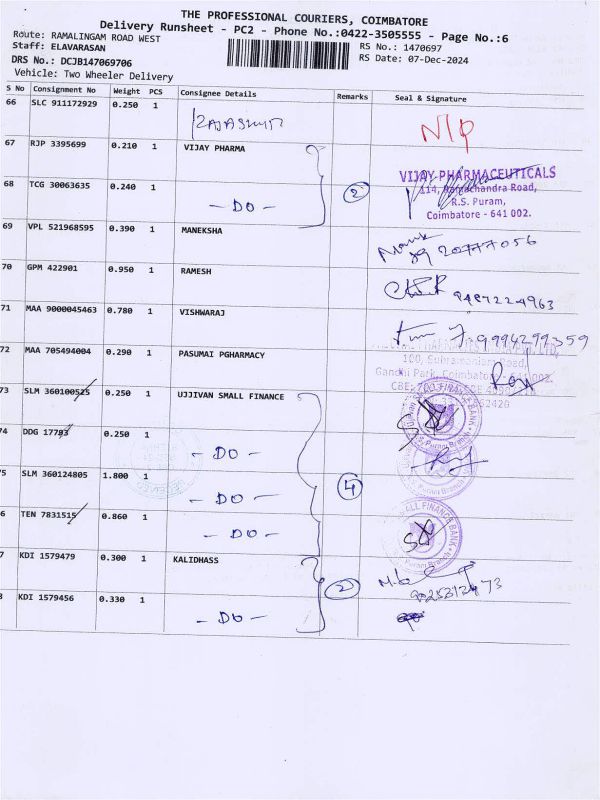 THE PROFESSIONAL COURIERS, COIMBATORE
Delivery Runsheet - PC2 - Phone No.:0422-3505555 - Page No.:6
Route: RAMALINGAM ROAD WEST
Staff: ELAVARASAN
RS No.: 1470697
DRS No.: DCJB147069706
RS Date: 07-Dec-2024
Vehicle: Two Wheeler Delivery
S No Consignment No Weight PCS Consignee Details Remarks Seal & Signature
66 SLC 911172929 0.250 1 N/P
67 RJP 3395699 0.210 1 VIJAY PHARMA
VIJAY PHARMACEUTICALS
68 TCG 30063635 0.240 1 - DO - 2 114, Ramachandra Road,
R.S. Puram,
Coimbatore - 641 002.
69 VPL 521968595 0.390 1 MANEKSHA
70 GPM 422901 0.950 1 RAMESH
71 MAA 9000045463 0.780 1 VISHWARAJ
9994299359
72 MAA 705494004 0.290 1 PASUMAI PGHARMACY
100, Subramaniam Road,
Gandhi Park, Coimbatore - 641 002.
73 SLM 360100525 0.250 1 UJJIVAN SMALL FINANCE
74 DDG 17793 0.250 1 - DO -
75 SLM 360124805 1.800 1 - DO - 4
76 TEN 7831515 0.860 1 - DO -
77 KDI 1579479 0.300 1 KALIDHASS 2
78 KDI 1579456 0.330 1 - DO -